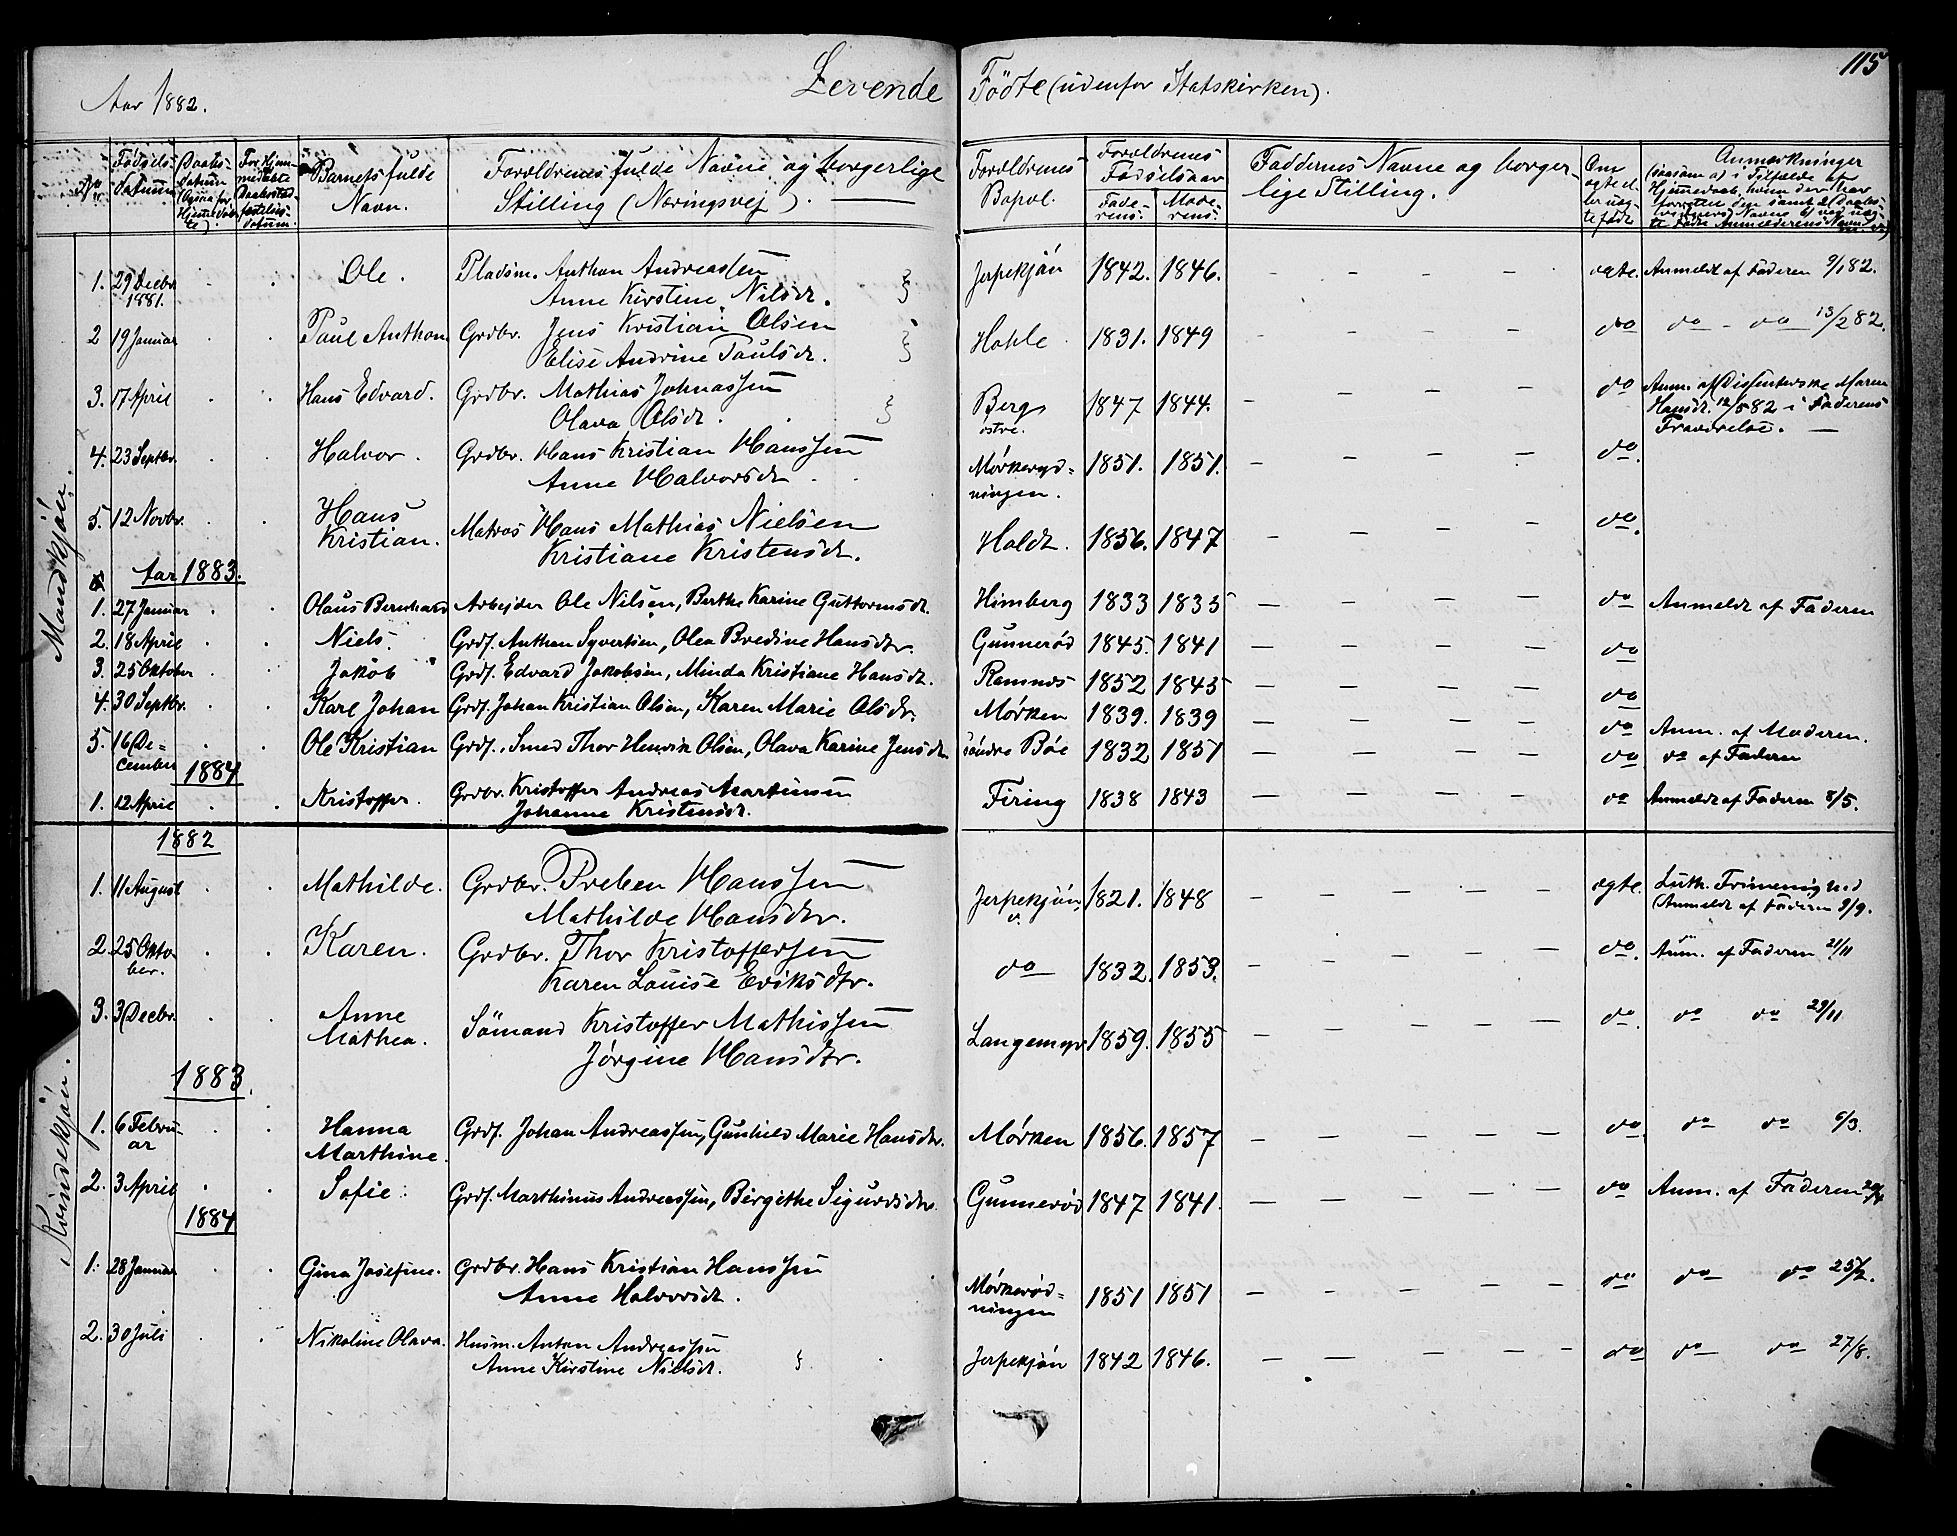 115
Aar 1882. Levende Födte (udenfor Statskirken).
No Fødselsdatum Daabsdatum For Hjemmedøbte Barnets fulde Navn. Forældrenes fulde Navne og borgerlige Stilling (Næringsvej). Forældrenes Bopæl. Forældrenes Fødselsaar Faderens: Moderens: Faddernes Navne og borgerlige Stilling. Om ægte el. uægte født Anmærkninger
Mandkjøn.
1. 29 Decbr. Ole. Pladsm. Anthon Andreassen Jerpekjön 1842. 1846. — — — — ægte. Anmeldt af Faderen 9/1 82.
1881. Anne Kirstine Nilsdt.
2 19 Januar Paul Anthon Grdbr. Jens Kristian Olsen Hohle 1831. 1849 — — — — do do - do — 13/2 82.
Elise Andrine Paulsdt.
3. 17 April Hans Edvard. Grdbr. Mathias Johnassen Berg 1847 1844. — — — — do Anm. af Dissenterske Maren
Olava Olsdt. østre. Hansdt. 12/5 82 i Faderens
Fraværelse. —
4. 23 Septbr. Halvor. Grdbr. Hans Kristian Hanssen Mörkeryd= 1851. 1851. — — — — do.
Anne Halvorsdt. ningen.
5. 12 Novbr. Hans Matros Hans Mathias Nielsen Holdt. 1856. 1847 — — — — do.
Kristian. Kristiane Kristensdt.
Aar 1883.
1. 27 Januar Olaus Bernhard Arbejder Ole Nilsen, Berthe Karine Guttormsdt. Himberg 1833 1835 — — — — do Anmeldt af Faderen
2. 18 April Niels. Grdf. Anthon Syvertsen, Olea Bredine Hansdtr. Gunnerød 1845. 1841 — — — — do
3. 25 Oktober Jakob Grdf. Edvard Jakobsen, Minda Kristiane Hansdt. Ramnes 1852 1845 — — — — do
4. 30 Septbr. Karl Johan Grdf. Johan Kristian Olsen, Karen Marie Olsdtr. Mörken 1839. 1839 — — — — do Anm. af Moderen.
5. 16 De= Ole Kristian Grdf. Smed Thor Henrik Olsen, Olava Karine Jensdt. söndre Böe 1832 1851 — — — — do do af Faderen
cember
1884
1. 12 April Kristoffer. Grdbr. Kristoffer Andreas Martinsen Firing 1838 1843 — — — — do Anmeldt af Faderen 8/5.
Johanne Kristensdt.
Kvindekjøn.
1882
1. 11 August Mathilde. Grdbr. Preben Hanssen Jerpekjön, 1821. 1848 — — — — ægte. Luth. Frimenighed
Mathilde Hansdtr. Anmeldt af Faderen 9/9.
2. 25 Okto- Karen. Grdbr. Thor Kristoffersen do 1832. 1853. — — — — do. Anm. af Faderen 21/11
ber. Karen Louise Eriksdtr.
3. 3 Decbr. Anne Sömand Kristoffer Mathissen Langemyr 1859. 1855 — — — — do. do do 29/11
Mathea. Jørgine Hansdtr.
1883.
1. 6 Febru- Hanna Grdf. Johan Andreassen, Gunhild Marie Hansdtr. Mörken 1856. 1857 — — — — do. do do 6/3.
ar Marthine.
2. 3 April Sofie. Grdf. Marthinus Andreassen, Birgithe Sigurdsdtr. Gunnerød 1847 1841. — — — — do Anm. af Faderen
1884
1. 28 Januar Gina Josefine. Grdbr. Hans Kristian Hanssen Mörkeröd= 1851 1851 — — — — do do do 25/2.
Anne Halvorsdt. ningen
2. 30 Juli Nikoline Olava. Husm. Anton Andreassen Jerpekjön 1842 1846. — — — — do do do 27/8.
Anne Kirstine Nielsdt.